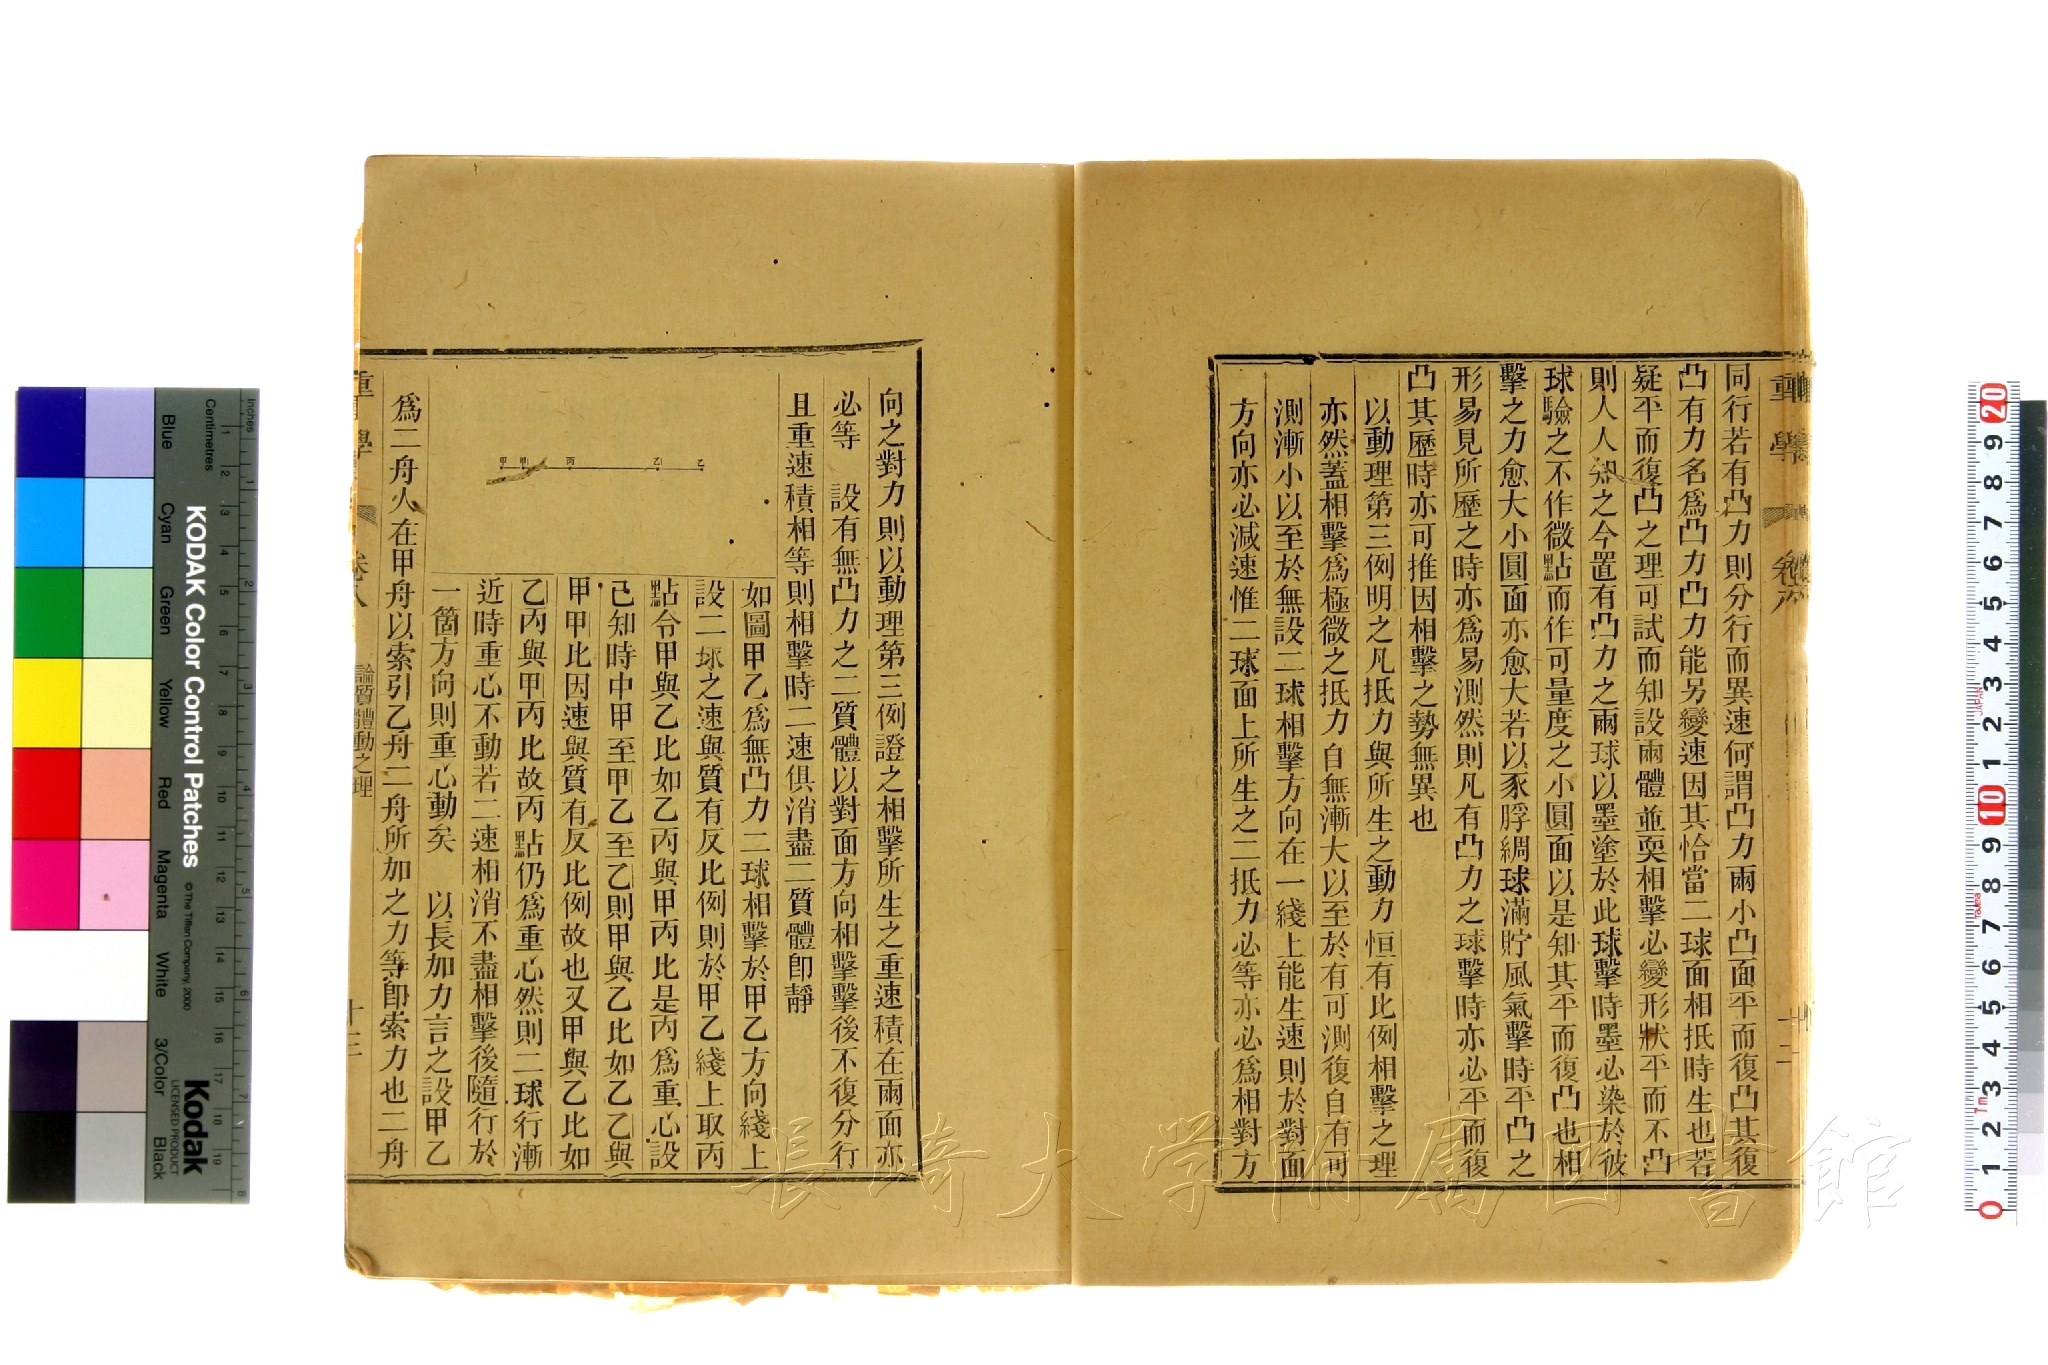 同行若有凸力則分行而異速何謂凸力兩小凸面平而復凸其復
凸有力名爲凸力凸力能另變速因其恰當二球面相抵時生也若
疑平而復凸之理可試而知設兩體並耎相擊必變形狀平而不凸
則人人知之今置有凸力之兩球以墨塗於此球擊時墨必染於彼
球驗之不作微點而作可量度之小圓面以是知其平而復凸也相
擊之力愈大小圓面亦愈大若以豕脬綢球滿貯風氣擊時平凸之
形易見所歷之時亦爲易測然則凡有凸力之球擊時亦必平而復
凸其歷時亦可推因相擊之勢無異也
以動理第三例明之凡抵力與所生之動力恒有比例相擊之理
亦然蓋相擊爲極微之抵力自無漸大以至於有可測復自有可
測漸小以至於無設二球相擊方向在一綫上能生速則於對面
方向亦必減速惟二球面上所生之二抵力必等亦必爲相對方
向之對力則以動理第三例證之相擊所生之重速積在兩面亦
必等　設有無凸力之二質體以對面方向相擊擊後不復分行
且重速積相等則相擊時二速俱消盡二質體卽靜
甲 甲 丙 乙 乙
如圖甲乙爲無凸力二球相擊於甲乙方向綫上
設二球之速與質有反比例則於甲乙綫上取丙
點令甲與乙比如乙丙與甲丙比是丙爲重心設
已知時中甲至甲乙至乙則甲與乙比如乙乙與
甲甲比因速與質有反比例故也又甲與乙比如
乙丙與甲丙比故丙點仍爲重心然則二球行漸
近時重心不動若二速相消不盡相擊後隨行於
一箇方向則重心動矣　以長加力言之設甲乙
爲二舟人在甲舟以索引乙舟二舟所加之力等卽索力也二舟
重學
卷八
論質體動之理
十三
重學
卷八
KODAK Color Control Patches
© The Tiffen Company, 2000
Kodak
LICENSED PRODUCT
Inches
Centimetres
Blue
Cyan
Green
Yellow
Red
Magenta
White
3/Color
Black
JAPAN
Tajima
長崎大学附属図書館